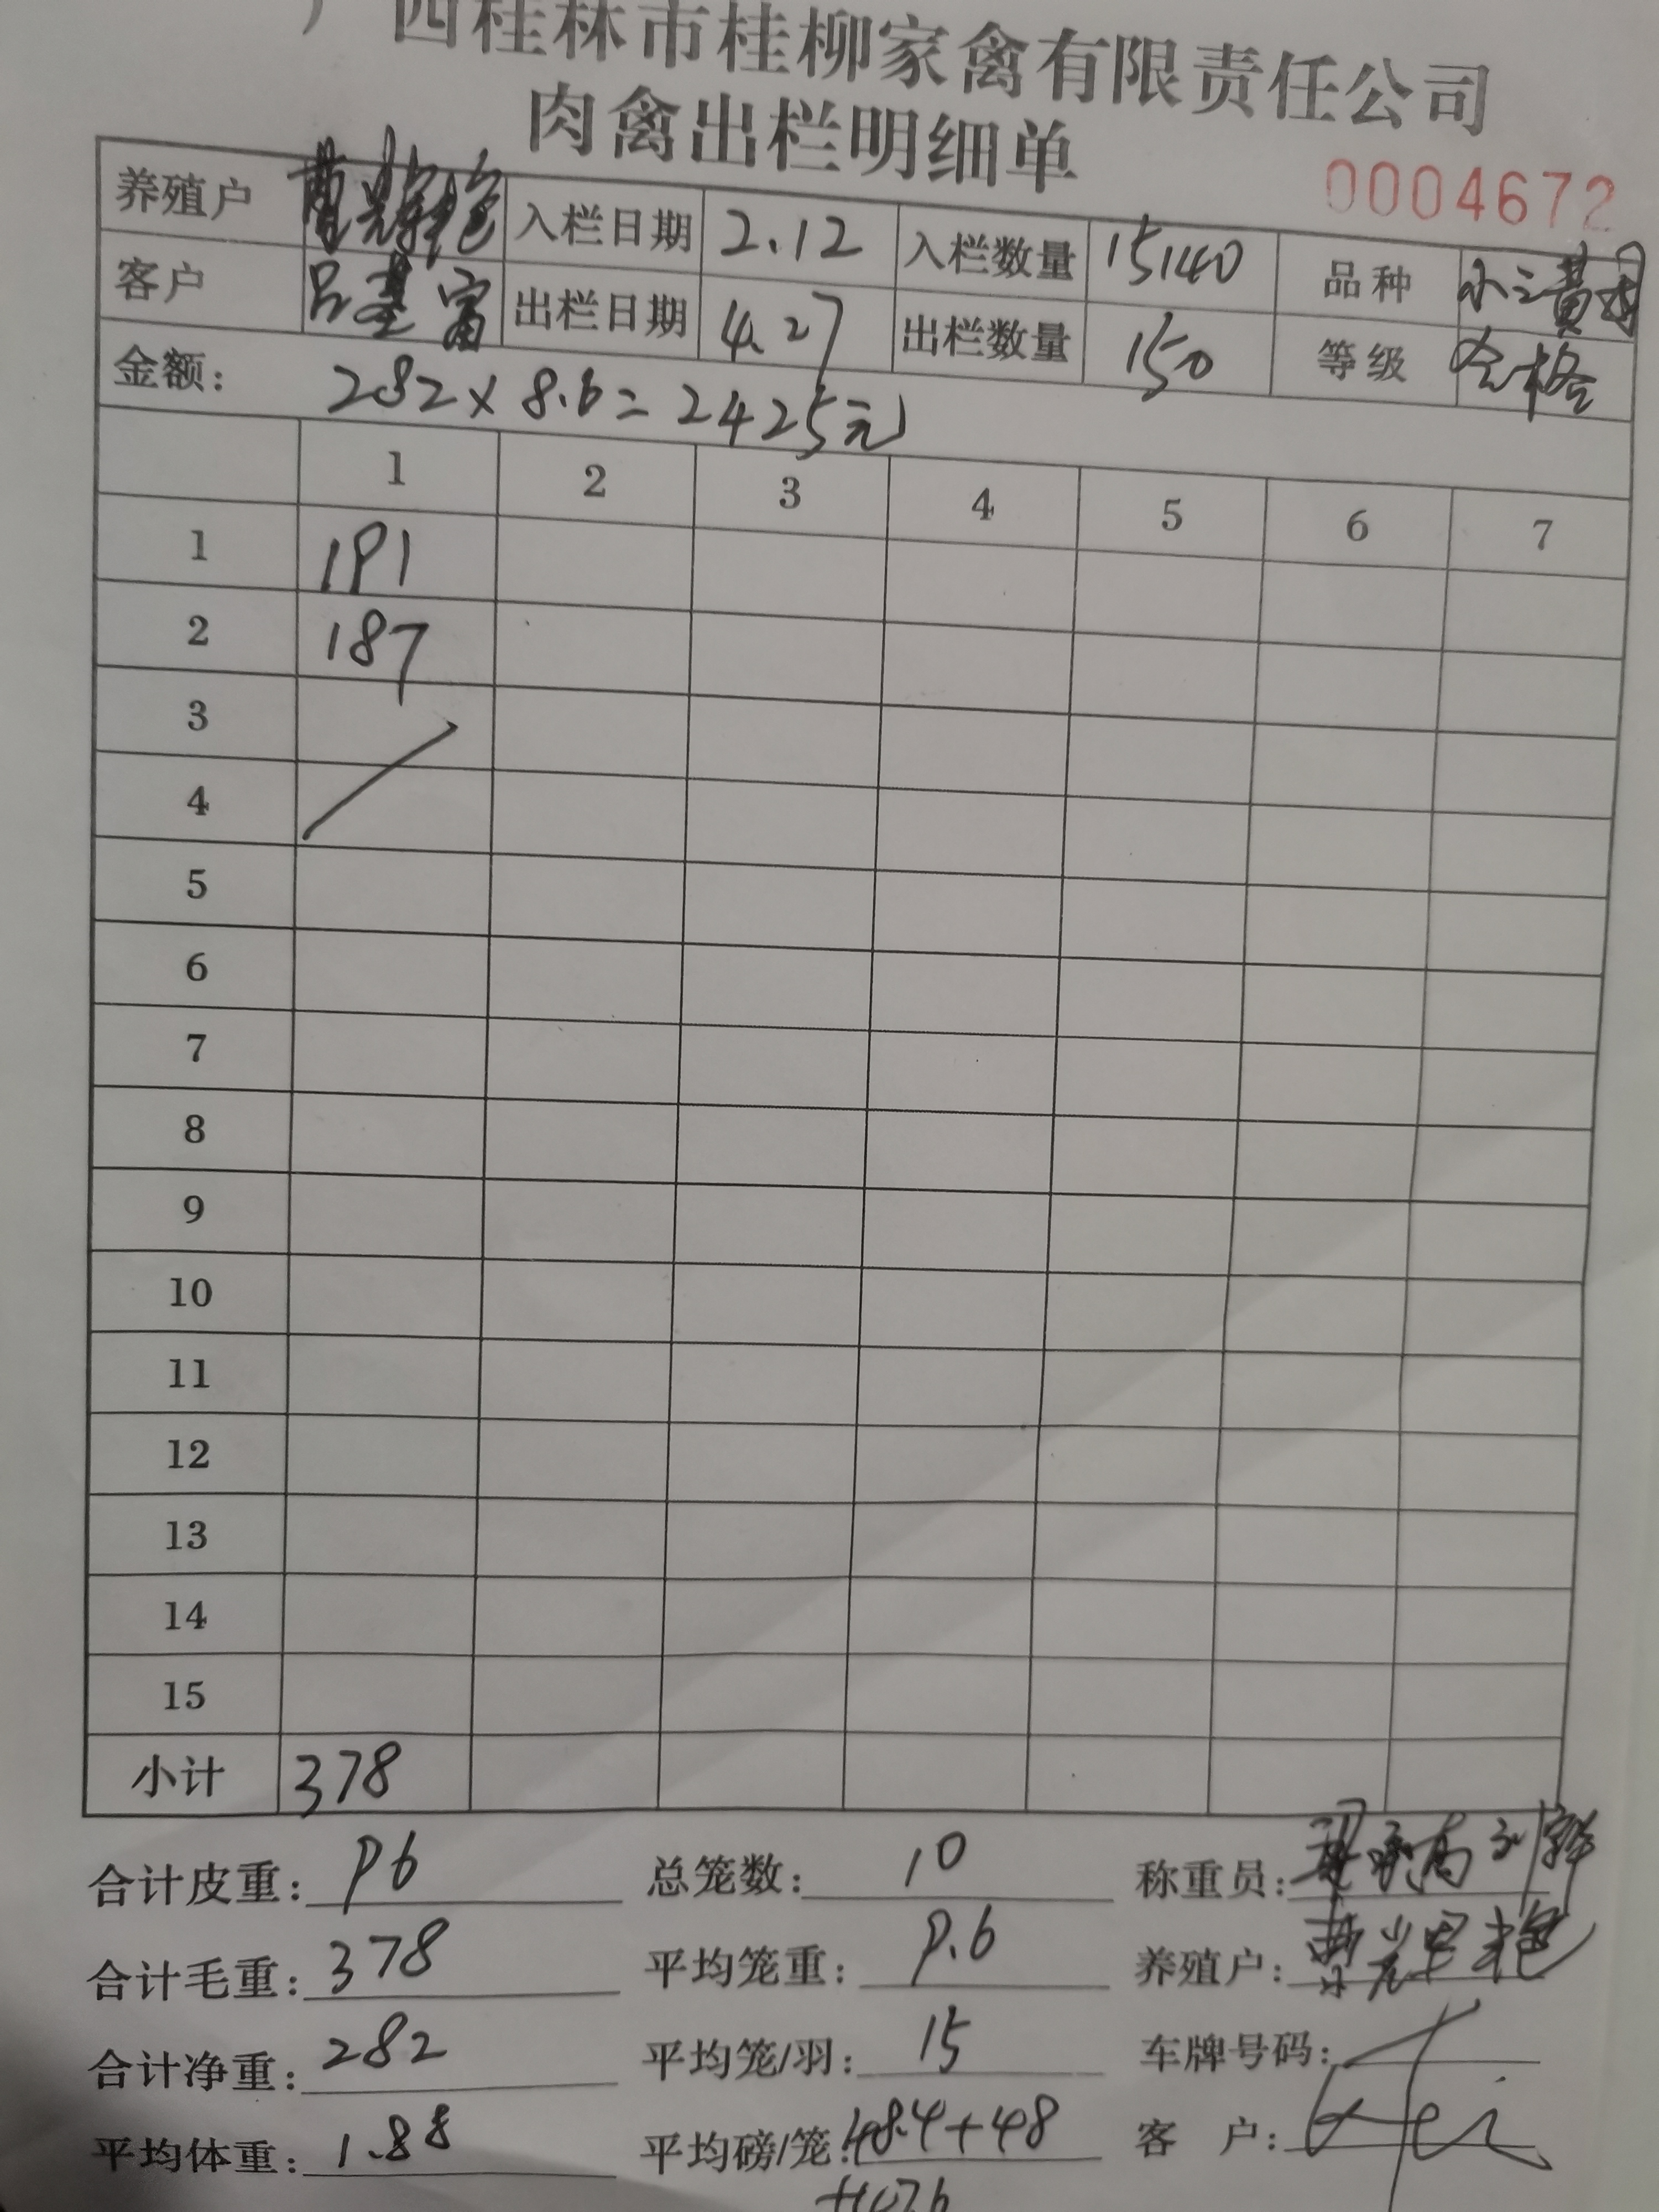 广西桂林市桂柳家禽有限责任公司
肉禽出栏明细单
0004672
养殖户 曹辉艳 入栏日期 2.12 入栏数量 15140 品种 小三黄
客户 吕基富 出栏日期 4.27 出栏数量 150 等级 合格
金额: 282×8.6=2425元
1 2 3 4 5 6 7
1 191
2 187
3
4
5
6
7
8
9
10
11
12
13
14
15
小计 378
合计皮重: 96 总笼数: 10 称重员:
合计毛重: 378 平均笼重: 9.6 养殖户: 曹辉艳
合计净重: 282 平均笼/羽: 15 车牌号码:
平均体重: 1.88 平均磅/笼: 48.4+48 客 户: